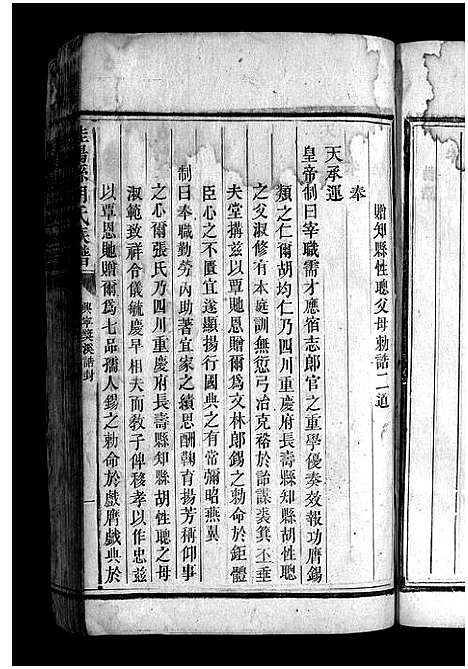 贈知縣性聰父母勅誥二道
奉
天承運
皇帝制曰宰職需才應宿志郎官之重學優奏效報功膺錫
類之仁爾胡均仁乃四川重慶府長壽縣知縣胡性聰
之父淑修有本庭訓無愆弓冶克裕於詒謀裘箕丕垂
夫堂搆茲以覃恩貤贈爾爲文林郎錫之勅命於鉅體
臣心之不匱宜遂顯揚行國典之有常彌昭燕翼
制曰奉職勤勞內助著宜家之績思酬鞠育揚芳稱仰事
之心爾張氏乃四川重慶府長壽縣知縣胡性聰之母
淑範致祥令儀毓慶早相夫而敎子俾移孝以作忠茲
以覃恩貤贈爾爲七品孺人錫之勅命於戲膺戲典於
桂陽縣胡氏族譜
興寧獎溪誥封
一